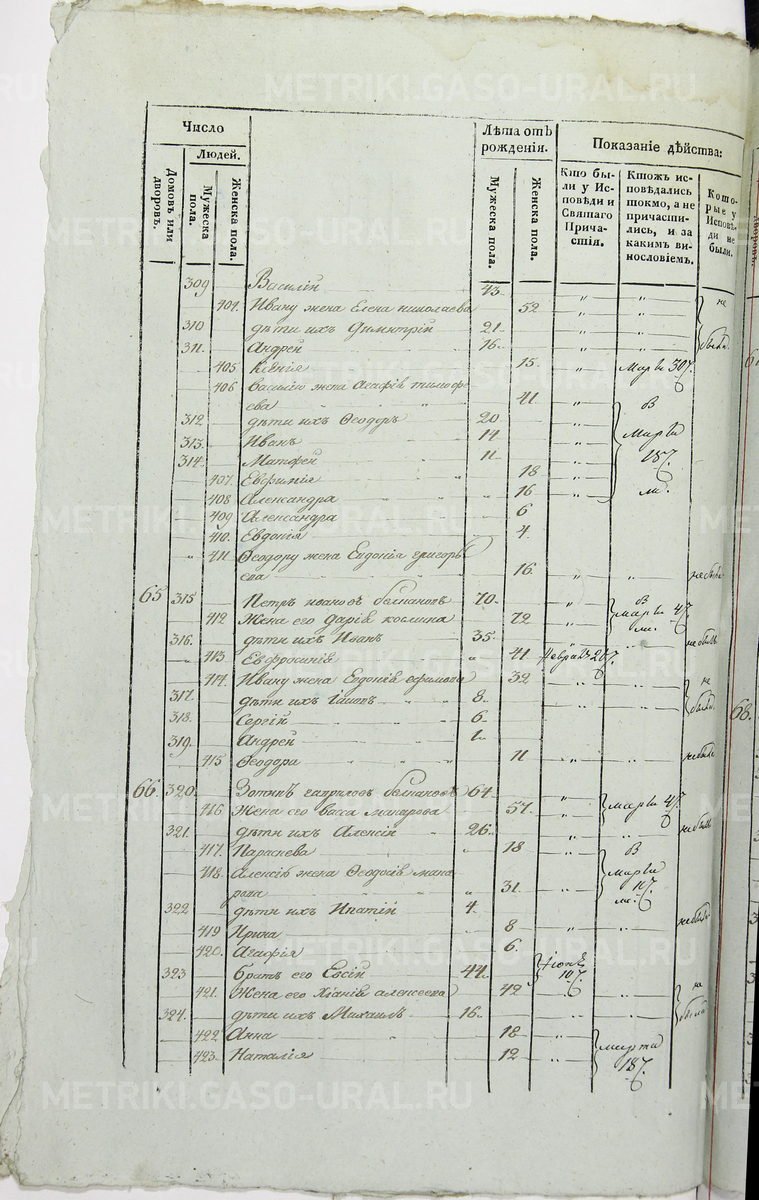 METRIKI.GASO-URAL.RU
Число
Людей.
Домовъ или дворовъ.
Мужеска пола.
Женска пола.
Лѣта отъ рожденія.
Мужеска пола.
Женска пола.
Показаніе дѣйства:
Кто были у Исповѣди и Святаго Причастія.
Ктожъ исповѣдались токмо, а не причастились, и за какимъ винословіемъ.
Которые у Исповѣди не были.
309 Василій 43
404. Ивану жена Елена николаева 52 не
310 дѣти ихъ Димитрій 21.
311. Андрей 16. были
405 Ксенія 15. Марта 30
406 Василію жена Агафія тимофе
ева 41 В
312 дѣти ихъ Ѳеодоръ 20
313. Иванъ 14 Марта
314. Матфей 11 18
407. Евфимія 18
408 Александра 16
409 Александра 6
410. Евдокія 4.
411 Ѳеодору жена Евдокія григорь
ева 16.
65 315 Петръ ивановъ 70. В
412 Жена его дарія космина 72 марта 4
316. дѣти ихъ Иванъ 35 не былъ
413 Евфросинія 41
414. Ивану жена Евдокія ефимова 32 не
317. дѣти ихъ 8. были
318. Сергій 6.
319. Андрей 1.
415 Ѳеодора 11
66. 320. гавриловъ 64
416 Жена его васса макарова 57. Марта 4
321. дѣти ихъ Алексій 26 не былъ
417. Параскева 18 В
418. Алексію жена Ѳеодосія мака
рова 31. Марта
322 дѣти ихъ Ипатій 4.
419 Ирина 8
420. Агафія 6.
323 братъ его Евсій 44 10
421. Жена его алексеева 42 не
324. дѣти ихъ Михаилъ 16. были
422 Анна 18
423. Наталія 12 марта
18
68.